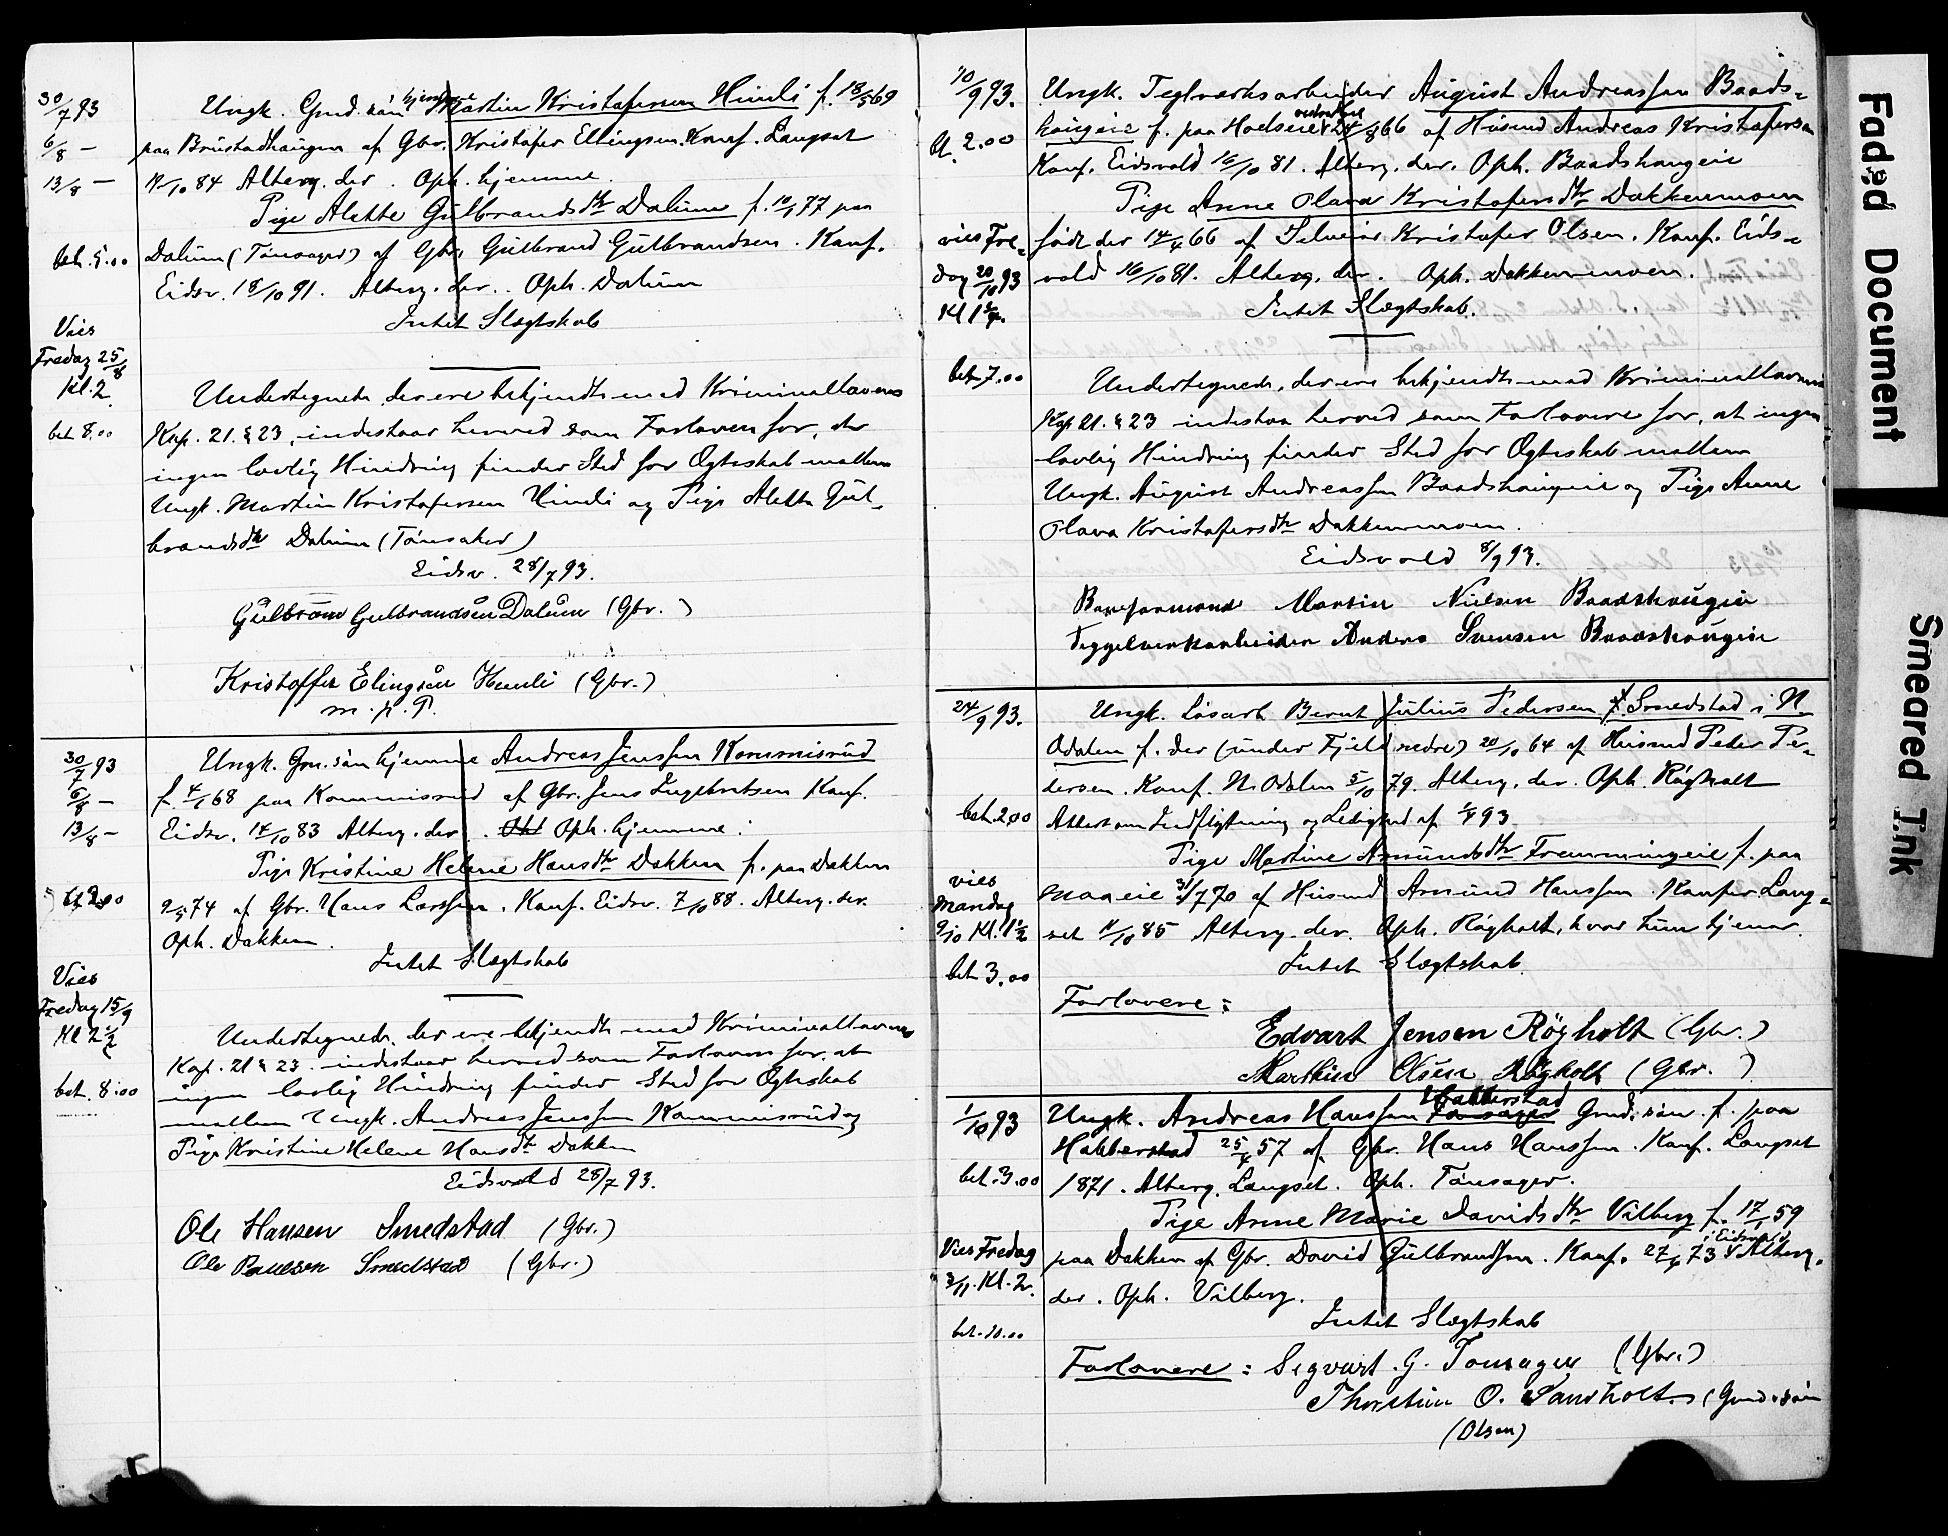 30/7 93
6/8 —
13/8 —
bet. 5.00
Vies
Fredag 25/8
Kl. 2
bet. 8.00
Ungk. Gmd. sön hjemme Martin Kristofersen Himli f. 18/5 69
paa Brustadhaugen af Gbr. Kristofer Ellingsen. Konf. Langset
/10 84 Alterg. der. Oph. hjemme.
Pige Alette Gulbrandsdtr Dalum f. 10/1 77 paa
Dalum (Tönsager) af Gbr. Gulbrand Gulbrandsen. Konf.
Eidsv. 18/10 91. Alterg. der. Oph. Dalum
Intet Slægtskab
Undertegnede, der ere bekjendte med Kriminallovens
Kap. 21. § 23, indestaar herved som Forlovere for, at
ingen lovlig Hindring finder Sted for Ægteskab mellem
Ungk. Martin Kristofersen Himli og Pige Alette Gul-
brandsdtr Dalum (Tönsaker)
Eidsv. 28/7 93.
Gulbran Gulbrandsen Dalum (Gbr.)
Kristoffer Elingsen Himli (Gbr.)
m. p. P.
30/7 93
6/8 —
13/8 —
bet. 2.00
Vies
Fredag 15/9
Kl 2 1/2
bet. 8.00
Ungk. Gm. sön hjemme Andreas Jenssen Kommisrud
f. 4/1 68 paa Kommisrud af Gbr. Jens Ingebretsen Konf.
Eidsv. 14/10 83 Alterg. der. Oph. hjemme.
Pige Kristine Helene Hansdtr Dakken f. paa Dakken
9/5 74 af Gbr. Hans Larssen. Konf. Eidsv. 7/10 88. Alterg. der.
Oph. Dakken.
Intet Slægtskab
Undertegnede, der ere bekjendte med Kriminallovens
Kap. 21 § 23. indestaar herved som Forlovere for, at
ingen lovlig Hindring finder Sted for Ægteskab
mellem Ungk. Andreas Jenssen Kommisrud og
Pige Kristine Helene Hansdtr Dakken
Eidsvold 28/7 93.
Ole Hansen Smedstad (Gbr.)
Ole Paulsen Smedstad (Gbr.)
10/9 93.
bt. 2.00
vies Fre-
dag 20/10 93
Kl 1 1/2
bet. 7.00
Ungk. Teglværksarbeider August Andreassen Baads-
haugeie f. paa Hodseie 24/3 66 af Husmd Andreas Kristofersen
Konf. Eidsvold 16/10 81. Alterg. der. Oph. Baadshaugeie
Pige Anne Olava Kristofersdtr Dakkenmoen
født der 14/4 66 af Selveier Kristofer Olsen. Konf. Eids-
vold 16/10 81. Alterg. der. Oph. Dakkenmoen.
Intet Slægtskab.
Undertegnede, der ere bekjendte med Kriminallovens
Kap 21. § 23 indestaa herved som Forlovere for, at ingen
lovlig Hindring finder Sted for Ægteskab mellem
Ungk. August Andreassen Baadshaugeie og Pige Anne
Olava Kristofersdtr Dakkenmoen.
Eidsvold 8/9 93.
Baneformand Martin Nielsen Baadshaugeie
Teggelverkarbeider Anders Svensen Baadshaugeie
24/9 93.
bet. 2.00
vies
Mandag
9/10 Kl. 1 1/2
bet 3.00
Ungk. Lösarb Bernt Julius Pedersen f. Smedstad i N.
Odalen f. der (under Fjeld nedre) 20/10 64 af Husmd Peder Pe-
dersen. Konf. N. Odalen 5/10 79. Alterg. der. Oph. Rögholt
Attest om Indflytning og Ledighed af 93
Pige Martine Amundsdtr Fremmingeie f. paa
Moneie 31/7 70 af Husmd Amund Hanssen. Konfir. Lang-
set 11/10 85 Alterg. der. Oph. Rögholt, hvor hun tjener.
Intet Slægtskab.
Forlovere:
Edvart Jensen Rögholt (Gbr.)
Marthin Olsen Rögholt (Gbr.)
1/10 93
bet. 3.00
Vies Fredag
3/11. Kl. 2.
bet. 10.00
Habberstad
Ungk. Andreas Hanssen Tönsager Gmd. sön. f. paa
Habberstad 25/4 57 af Gbr. Hans Hanssen. Konf. Langset
1871. Alterg. Langset. Oph. Tönsager.
Pige Anne Marie Davidsdtr Vilberg f. 17/1 59
paa Dakken af Gbr. David Gulbrandsen. Konf. 27/4 73 i Eidsvold Alterg.
der. Oph. Vilberg.
Intet Slægtskab
Forlovere: Segvart. G. Tonsager (Gbr.)
Thorstein O. Sandholt. (Gmd. sön
(Olsen)
Faded Document
Smeared Ink